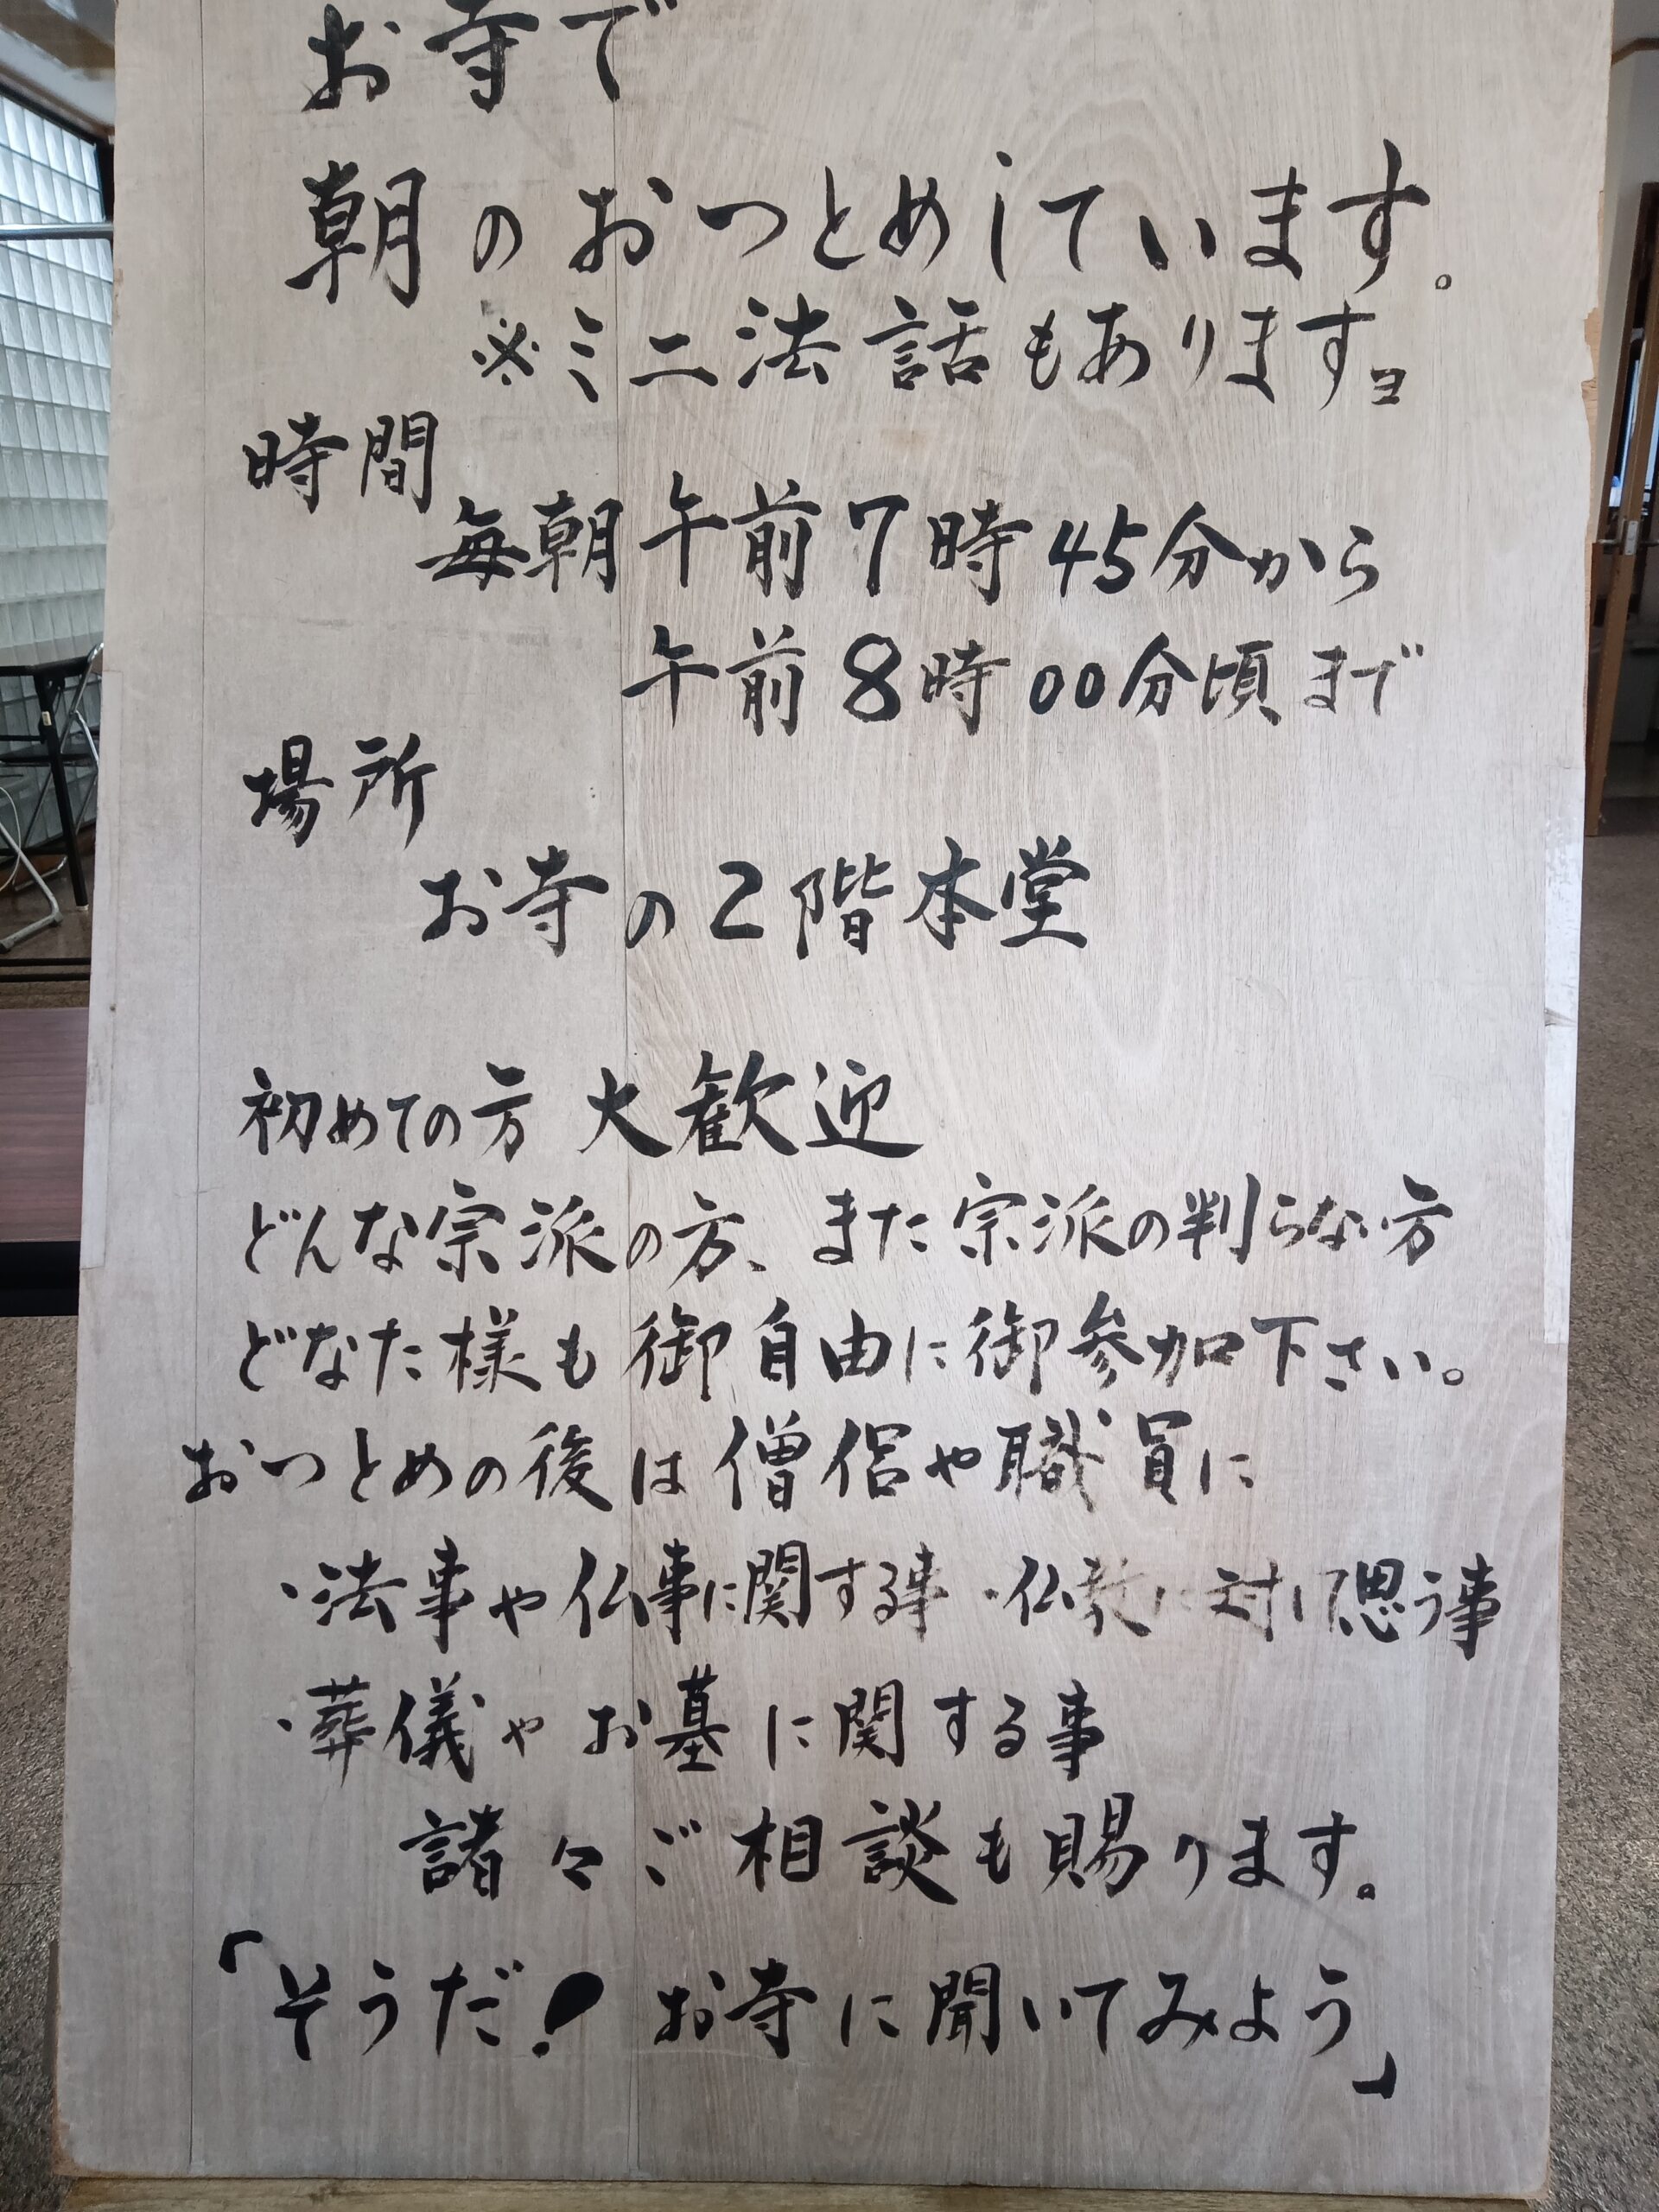 お寺で
朝のおつとめしています。
※ミニ法話もありますョ
時間
毎朝午前7時45分から
午前8時00分頃まで
場所
お寺の2階本堂
初めての方 大歓迎
どんな宗派の方、また宗派の判らない方
どなた様も御自由に御参加下さい。
おつとめの後は僧侶や職員に
・法事や仏事に関する事 ・仏教に対して思う事
・葬儀やお墓に関する事
諸々ご相談も賜ります。
「そうだ! お寺に聞いてみよう」